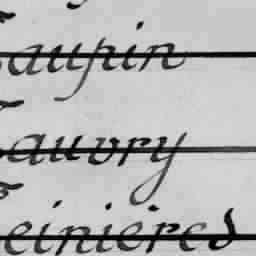 Taupin
Tauvry
Teinieres